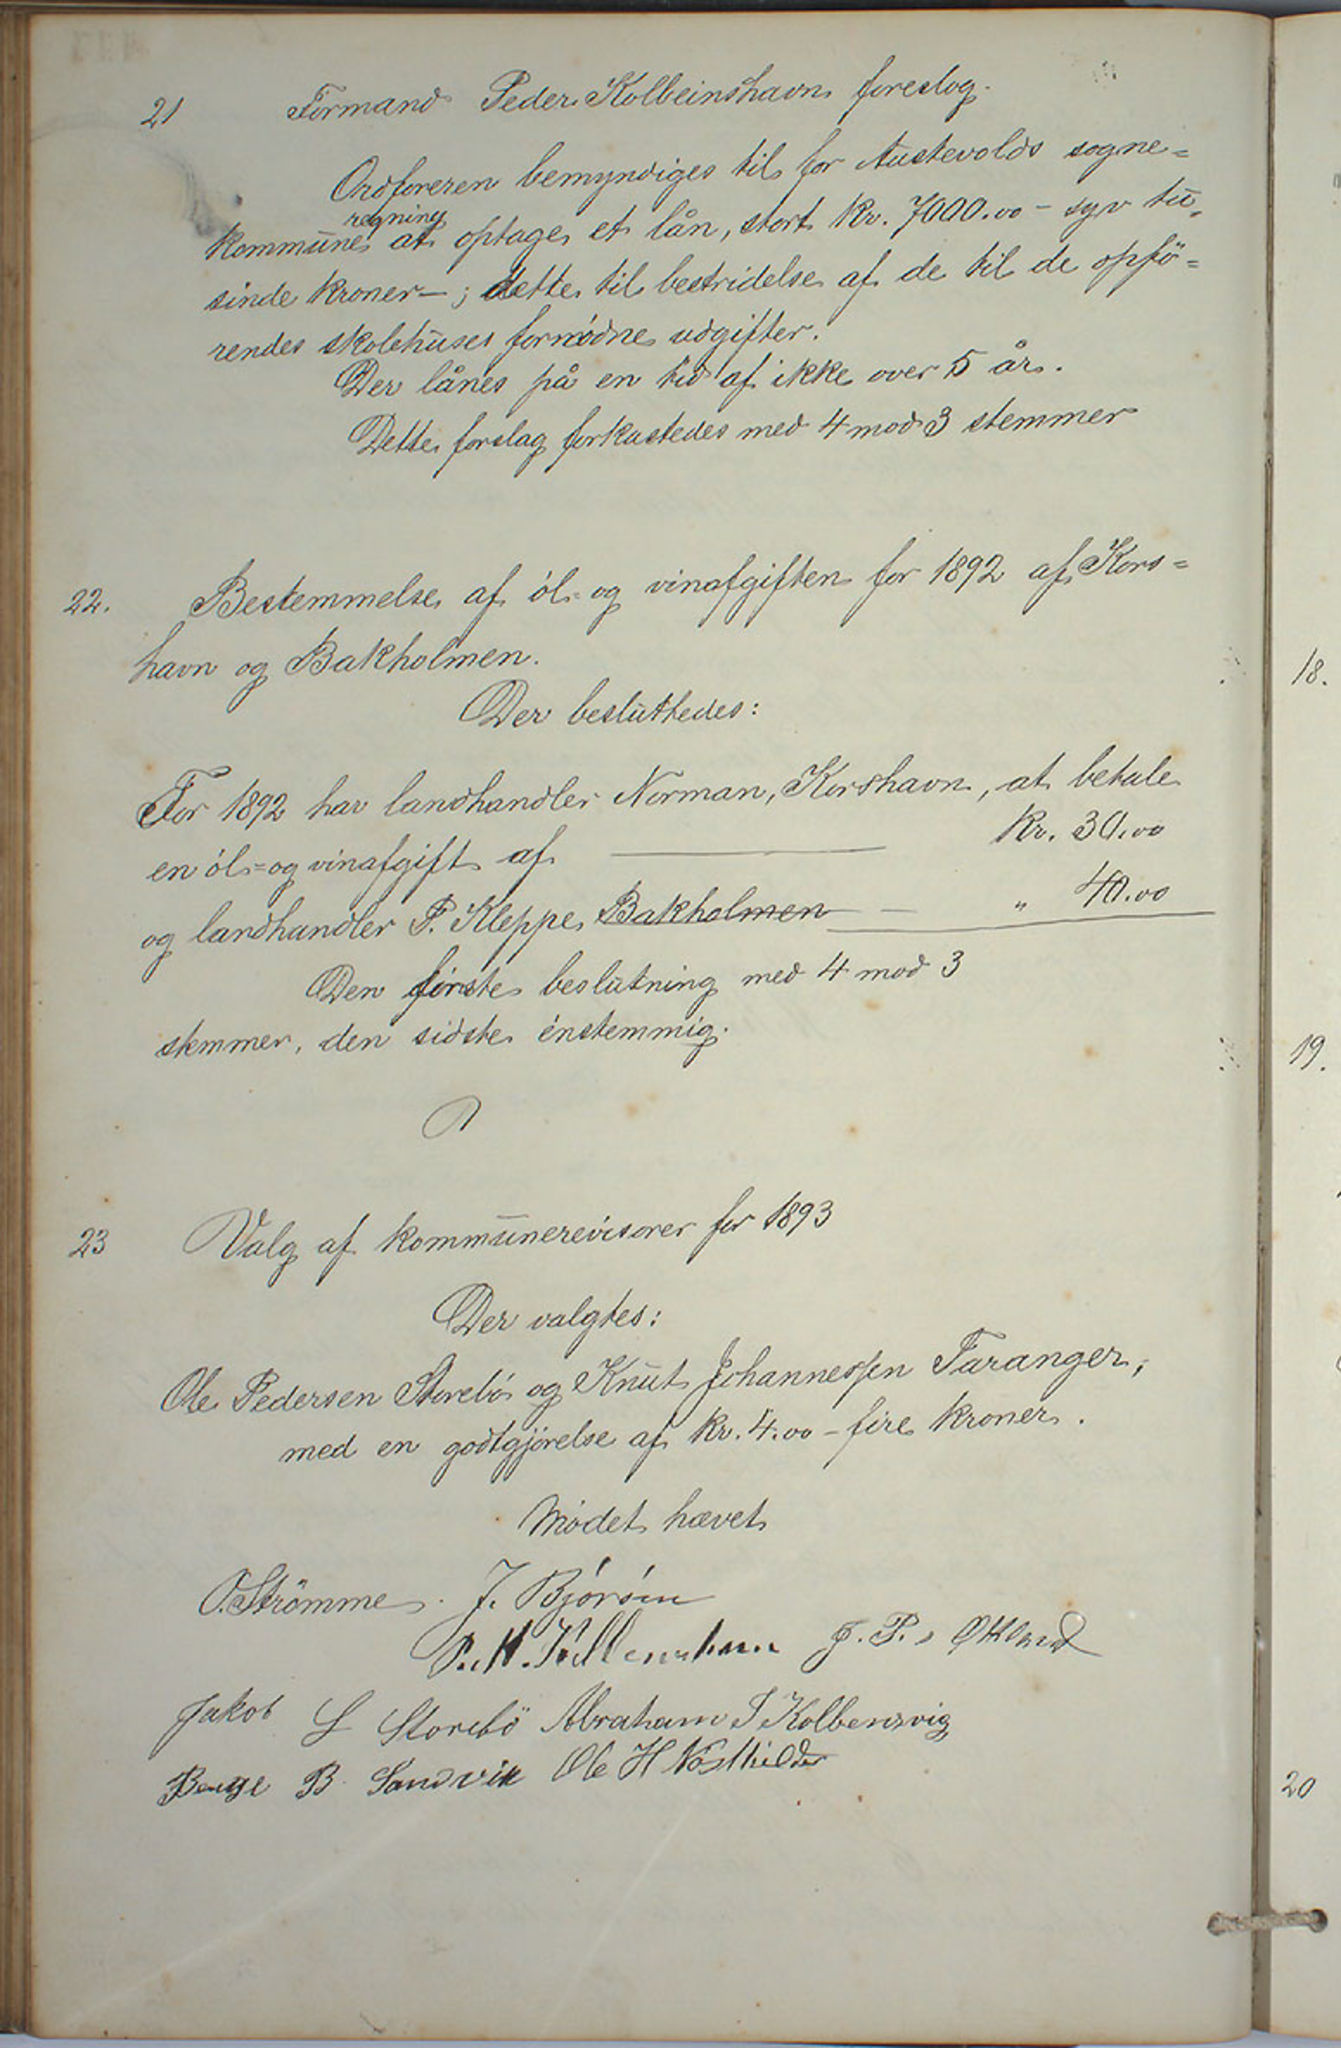 21 Formand Peder Kolbeinshavn foreslog.
Ordføreren bemyndiges til for Austevolds sogne=
kommunes regning at optage et lån, stort kr. 7000.00 – syv tu=
sinde kroner –; dette til bestridelse af de til de opfö=
rendes skolehuses fornødne udgifter.
Der lånes på en tid af ikke over 5 år.
Dette forslag forkastedes med 4 mod 3 stemmer
22. Bestemmelse af øl- og vinafgiften for 1892 af Kors=
havn og Bakholmen.
Der besluttedes:
For 1892 har landhandler Norman, Korshavn, at betale
en øl= og vinafgift af kr. 30.00
og landhandler P. Kleppe, Bakholmen — " 40.00
Den første beslutning med 4 mod 3
stemmer, den sidste énstemmig.
23 Valg af kommunerevisorer for 1893
Der valgtes:
Ole Pedersen Storebø og Knut Johannessen Faranger,
med en godtgjørelse af kr. 4.00 – fire kroner.
Mødet hævet
O. Strömme. J. Bjørøen
J. P. Økland
Jakob L Storebö Abraham I Kolbensvig
B. Sandvik Ole H
18.
19.
20